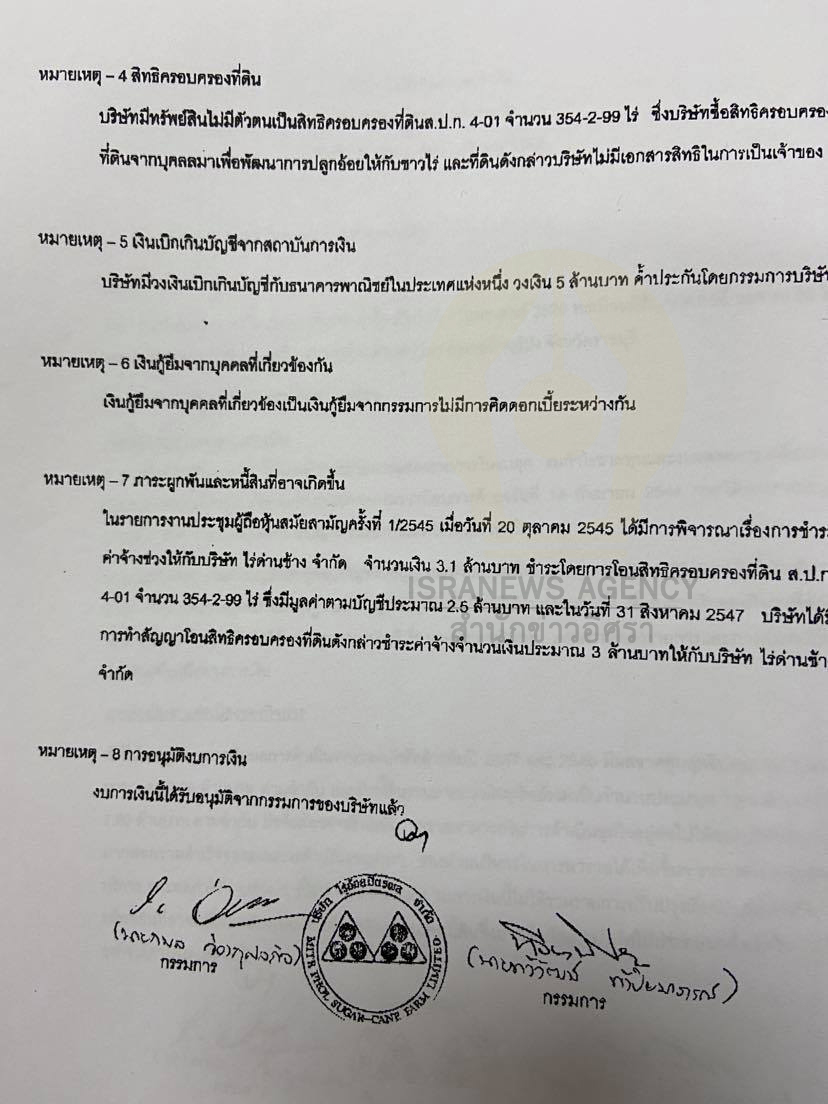 หมายเหตุ – 4 สิทธิครอบครองที่ดิน
บริษัทมีทรัพย์สินไม่มีตัวตนเป็นสิทธิครอบครองที่ดินส.ป.ก. 4-01 จำนวน 354-2-99 ไร่ ซึ่งบริษัทซื้อสิทธิครอบครอง
ที่ดินจากบุคคลมาเพื่อพัฒนาการปลูกอ้อยให้กับชาวไร่ และที่ดินดังกล่าวบริษัทไม่มีเอกสารสิทธิในการเป็นเจ้าของ
หมายเหตุ – 5 เงินเบิกเกินบัญชีจากสถาบันการเงิน
บริษัทมีวงเงินเบิกเกินบัญชีกับธนาคารพาณิชย์ในประเทศแห่งหนึ่ง วงเงิน 5 ล้านบาท ค้ำประกันโดยกรรมการบริษัท
หมายเหตุ – 6 เงินกู้ยืมจากบุคคลที่เกี่ยวข้องกัน
เงินกู้ยืมจากบุคคลที่เกี่ยวข้องเป็นเงินกู้ยืมจากกรรมการไม่มีการคิดดอกเบี้ยระหว่างกัน
หมายเหตุ – 7 ภาระผูกพันและหนี้สินที่อาจเกิดขึ้น
ในรายการงานประชุมผู้ถือหุ้นสมัยสามัญครั้งที่ 1/2545 เมื่อวันที่ 20 ตุลาคม 2545 ได้มีการพิจารณาเรื่องการชำระ
ค่าจ้างช่วงให้กับบริษัท ไร่ด่านช้าง จำกัด จำนวนเงิน 3.1 ล้านบาท ชำระโดยการโอนสิทธิครอบครองที่ดิน ส.ป.ก
ISRANEWS AGENCY
4-01 จำนวน 354-2-99 ไร่ ซึ่งมีมูลค่าตามบัญชีประมาณ 2.5 ล้านบาท และในวันที่ 31 สิงหาคม 2547 บริษัทได้มี
สำนักข่าวอิศรา
การทำสัญญาโอนสิทธิครอบครองที่ดินดังกล่าวชำระค่าจ้างจำนวนเงินประมาณ 3 ล้านบาทให้กับบริษัท ไร่ด่านช้า
จำกัด
หมายเหตุ – 8 การอนุมัติงบการเงิน
งบการเงินนี้ได้รับอนุมัติจากกรรมการของบริษัทแล้ว
บริษัท ไร่อ้อยมิตรผล จำกัด
MITR PHOL SUGAR-CANE FARM LIMITED
กรรมการ
กรรมการ